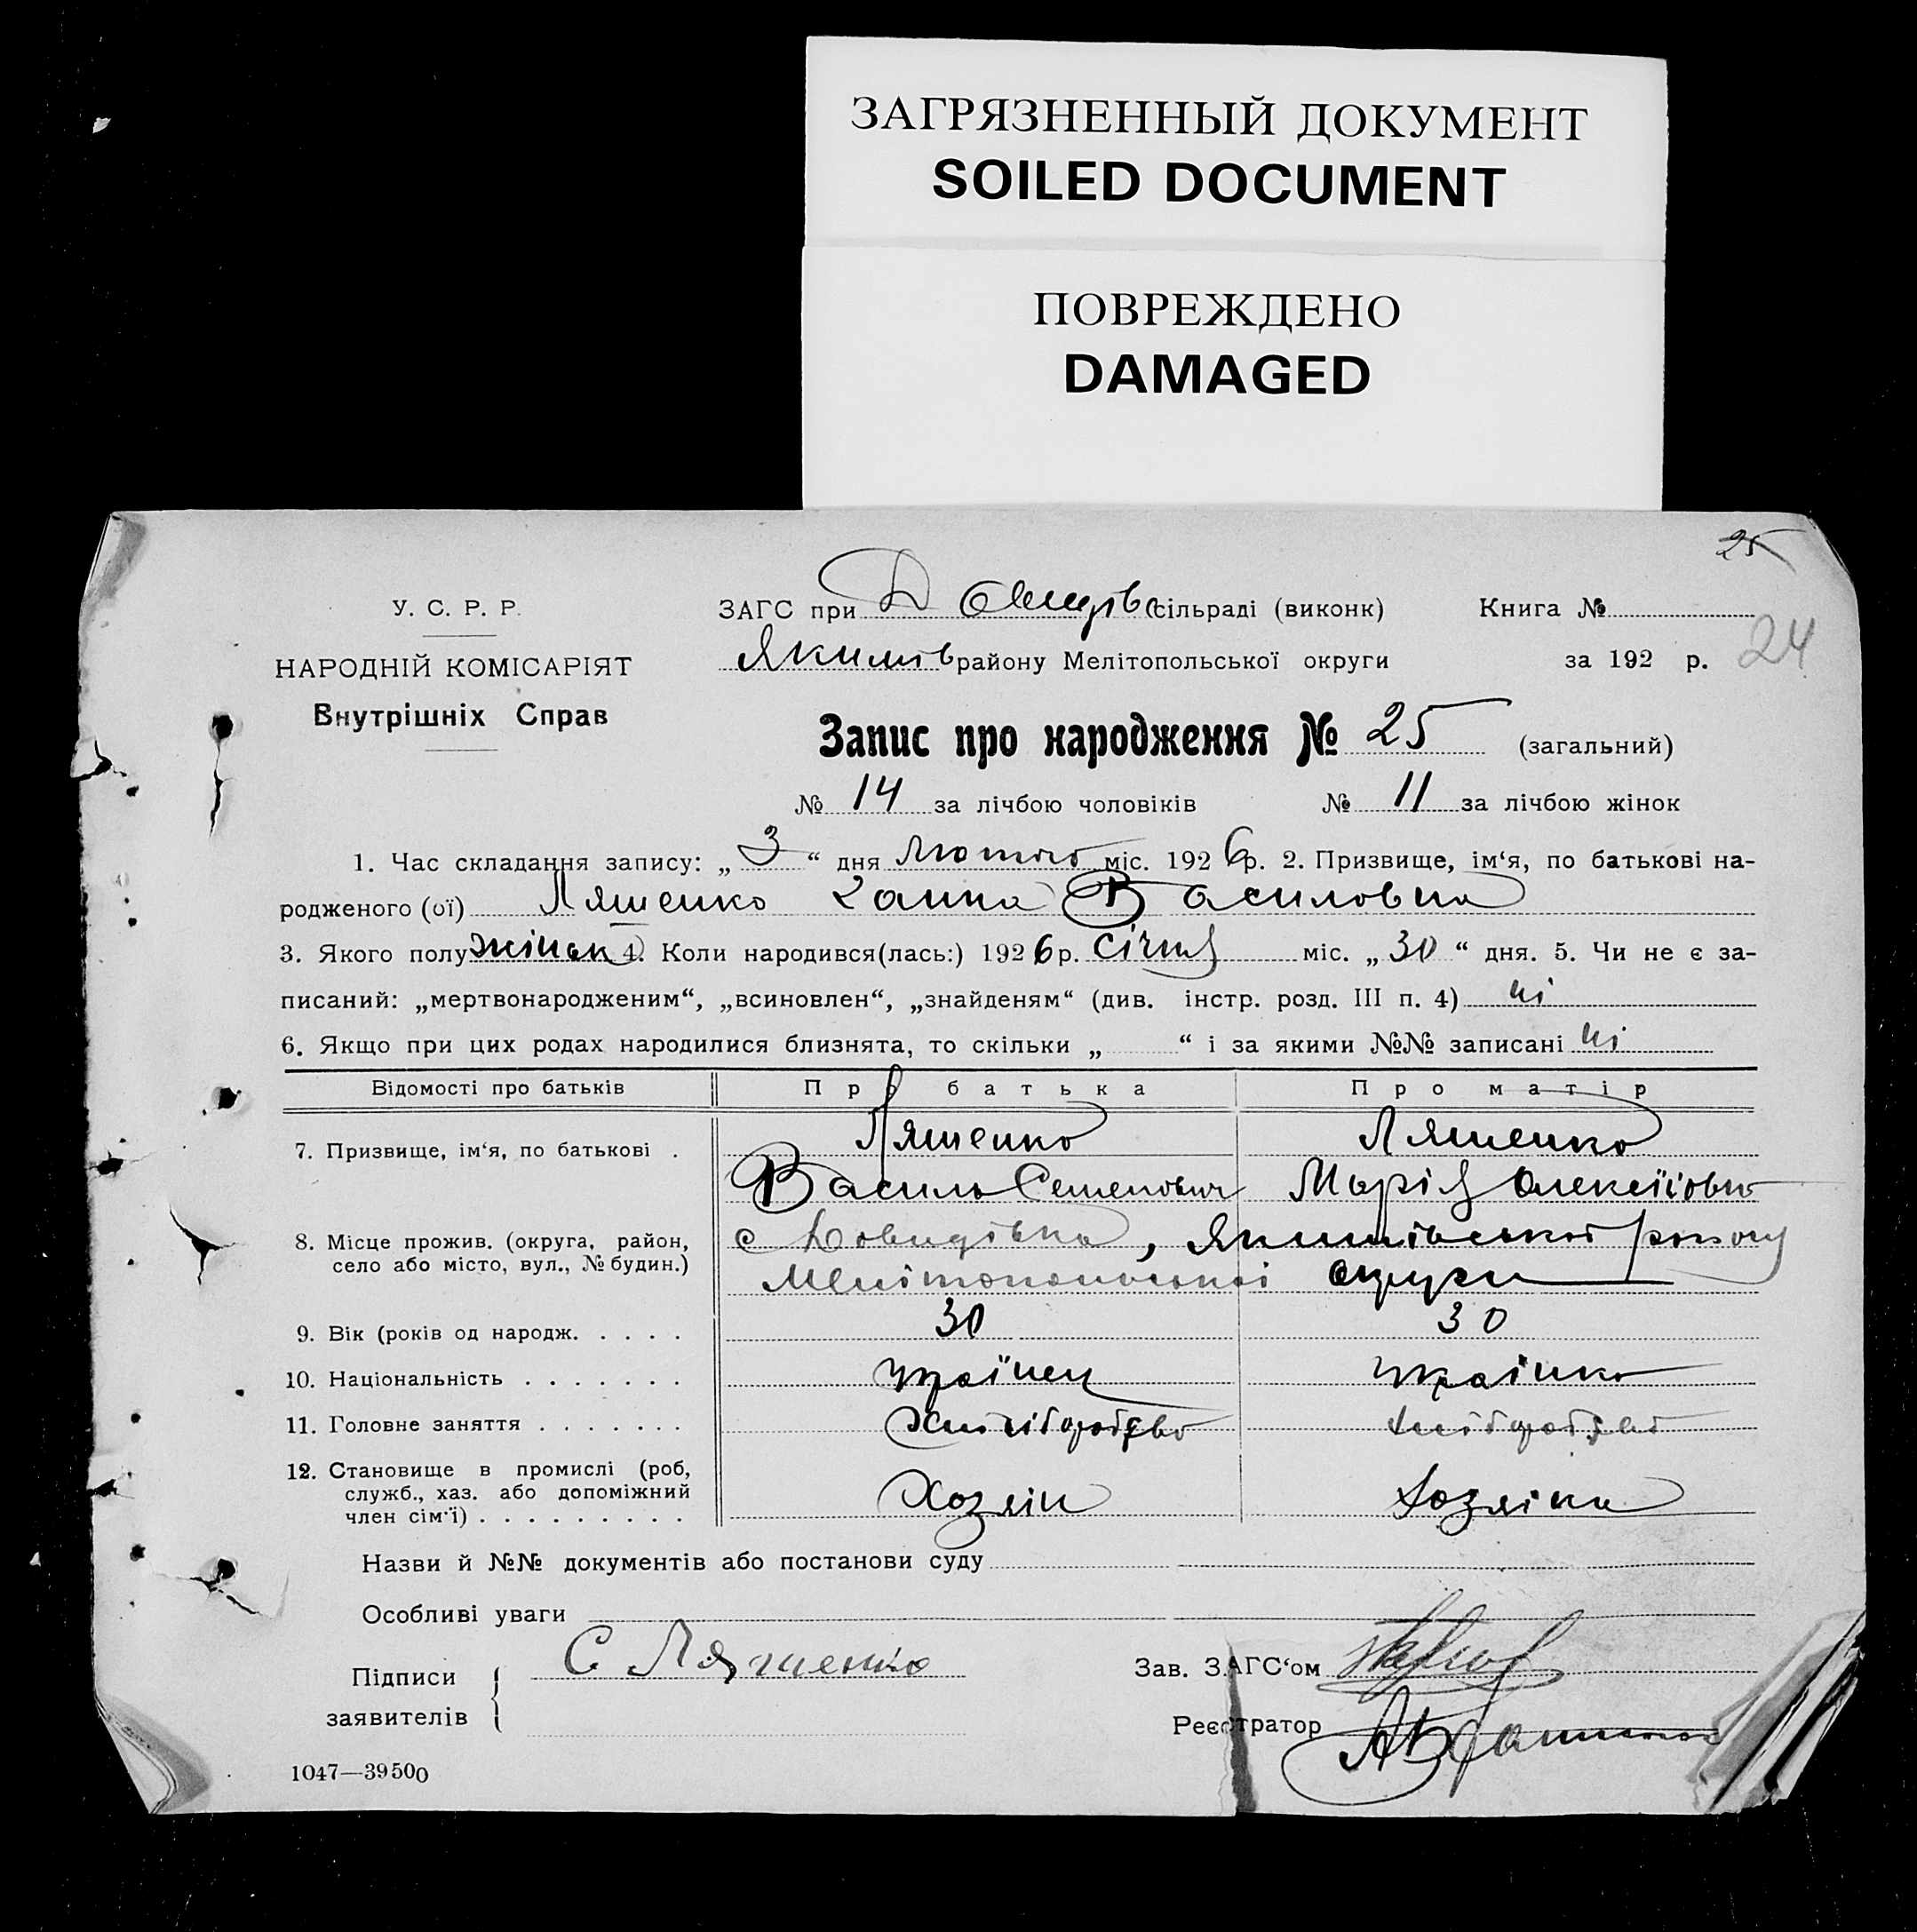 ЗАГРЯЗНЕННЫЙ ДОКУМЕНТ
SOILED DOCUMENT
ПОВРЕЖДЕНО
DAMAGED
25
У. С. Р. Р. ЗАГС при сільраді (виконк) Книга №
НАРОДНІЙ КОМІСАРІЯТ Якимів району Мелітопольської округи за 192 р. 24
Внутрішніх Справ
Запис про народження № 25 (загальний)
№ 14 за лічбою чоловіків № 11 за лічбою жінок
1. Час складання запису: „ 3 “ дня Лютого міс. 1926 р. 2. Призвище, ім‘я, по батькові на-
родженого (ої) Ляшенко Ганна Василовна
3. Якого полу жіноч 4. Коли народився(лась:) 1926 р. Січня міс. „ 30 “ дня. 5. Чи не є за-
писаний: „мертвонародженим“, „всиновлен“, „знайденям“ (див. інстр. розд. III п. 4) ні
6. Якщо при цих родах народилися близнята, то скільки „ “ і за якими №№ записані ні
Відомості про батьків Про батька Про матір
7. Призвище, ім‘я, по батькові . Ляшенко Ляшенко
Василь Семенович Марія Олексіїовно
8. Місце прожив. (округа, район, с Довидівка, Якимівської району
село або місто, вул., № будин.) Мелітопольської округи
9. Вік (років од народж. . . . . 30 30
10. Національність . . . . . . . українец українка
11. Головне заняття . . . . . . . Хліборобство хліборобство
12. Становище в промислі (роб,
служб., хаз. або допоміжний Хозяін Хозяіка
член сім‘ї) . . . . . . . . .
Назви й №№ документів або постанови суду
Особливі уваги
Підписи С Ляшенко Зав. ЗАГС‘ом
заявителів Реєстратор
1047—39500